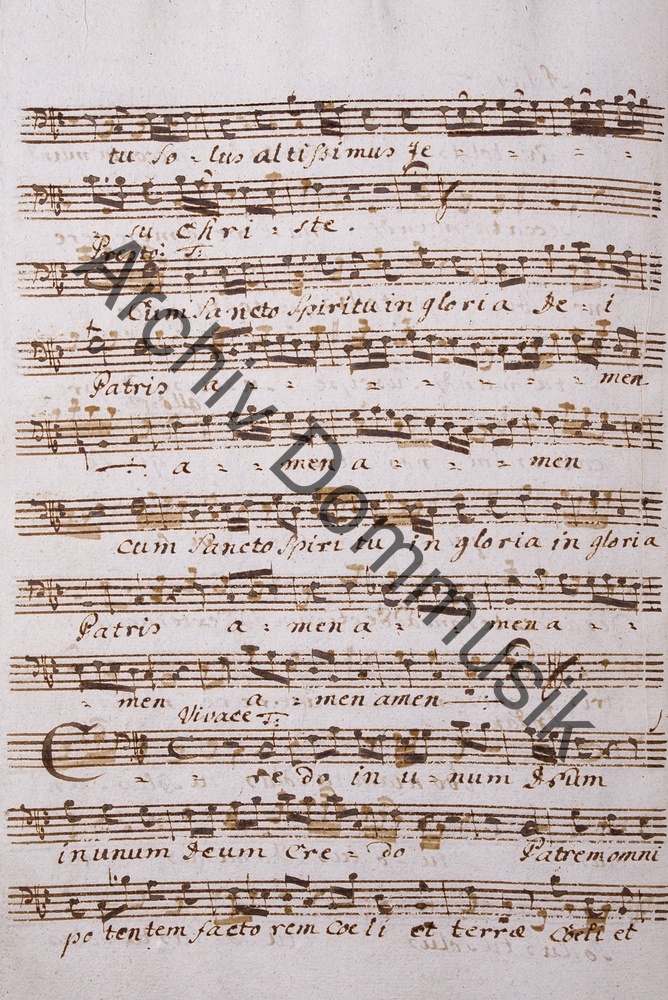 tu so - lus altissimus Je - - - -
- su Chri - ste.
Presto. T:
Cum Sancto Spiritu in gloria De - i
Patris a - - - - - - - men
a - - men a - - - - men
Cum Sancto Spiri tu in gloria in gloria
Patris a - men a - - men a - -
- men a - men amen
Vivace T:
C - - re - do in u - num Deum
in unum Deum Cre - do Patrem omni
po tentem facto rem Coeli et terræ Coeli et
Archiv Dommusik